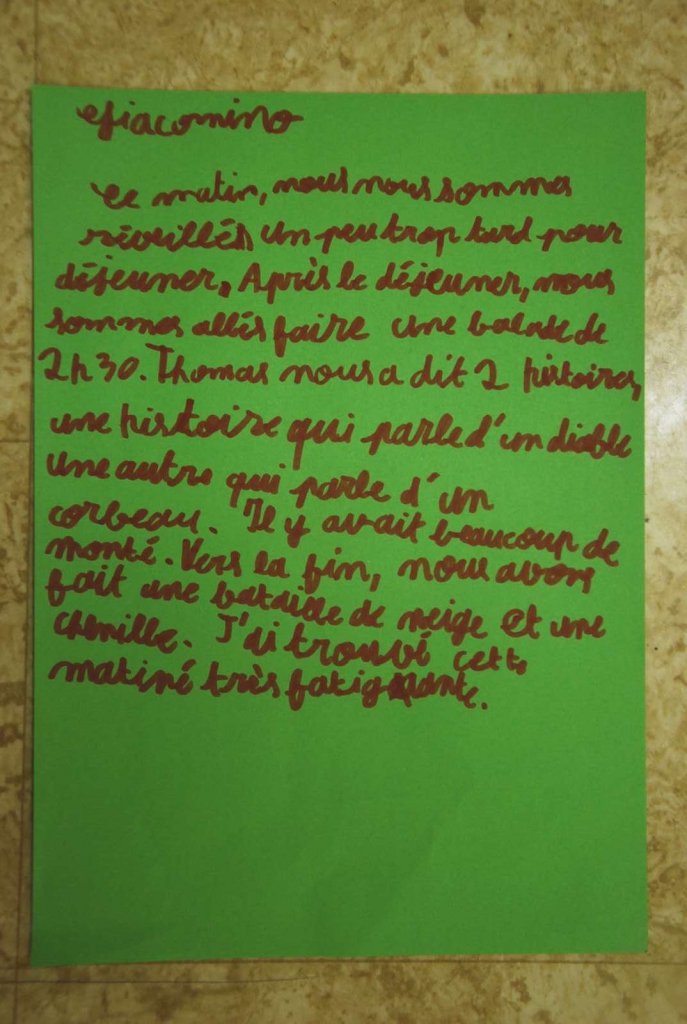 Giacomino
Ce matin, nous nous sommes
réveillés un peu trop tard pour
déjeuner. Après le déjeuner, nous
sommes allés faire une balade de
2h30. Thomas nous a dit 2 histoires,
une histoire qui parle d'un diable
une autre qui parle d'un
corbeau. Il y avait beaucoup de
monté. Vers la fin, nous avons
fait une bataille de neige et une
chenille. J'ai trouvé cette
matiné très fatigante.